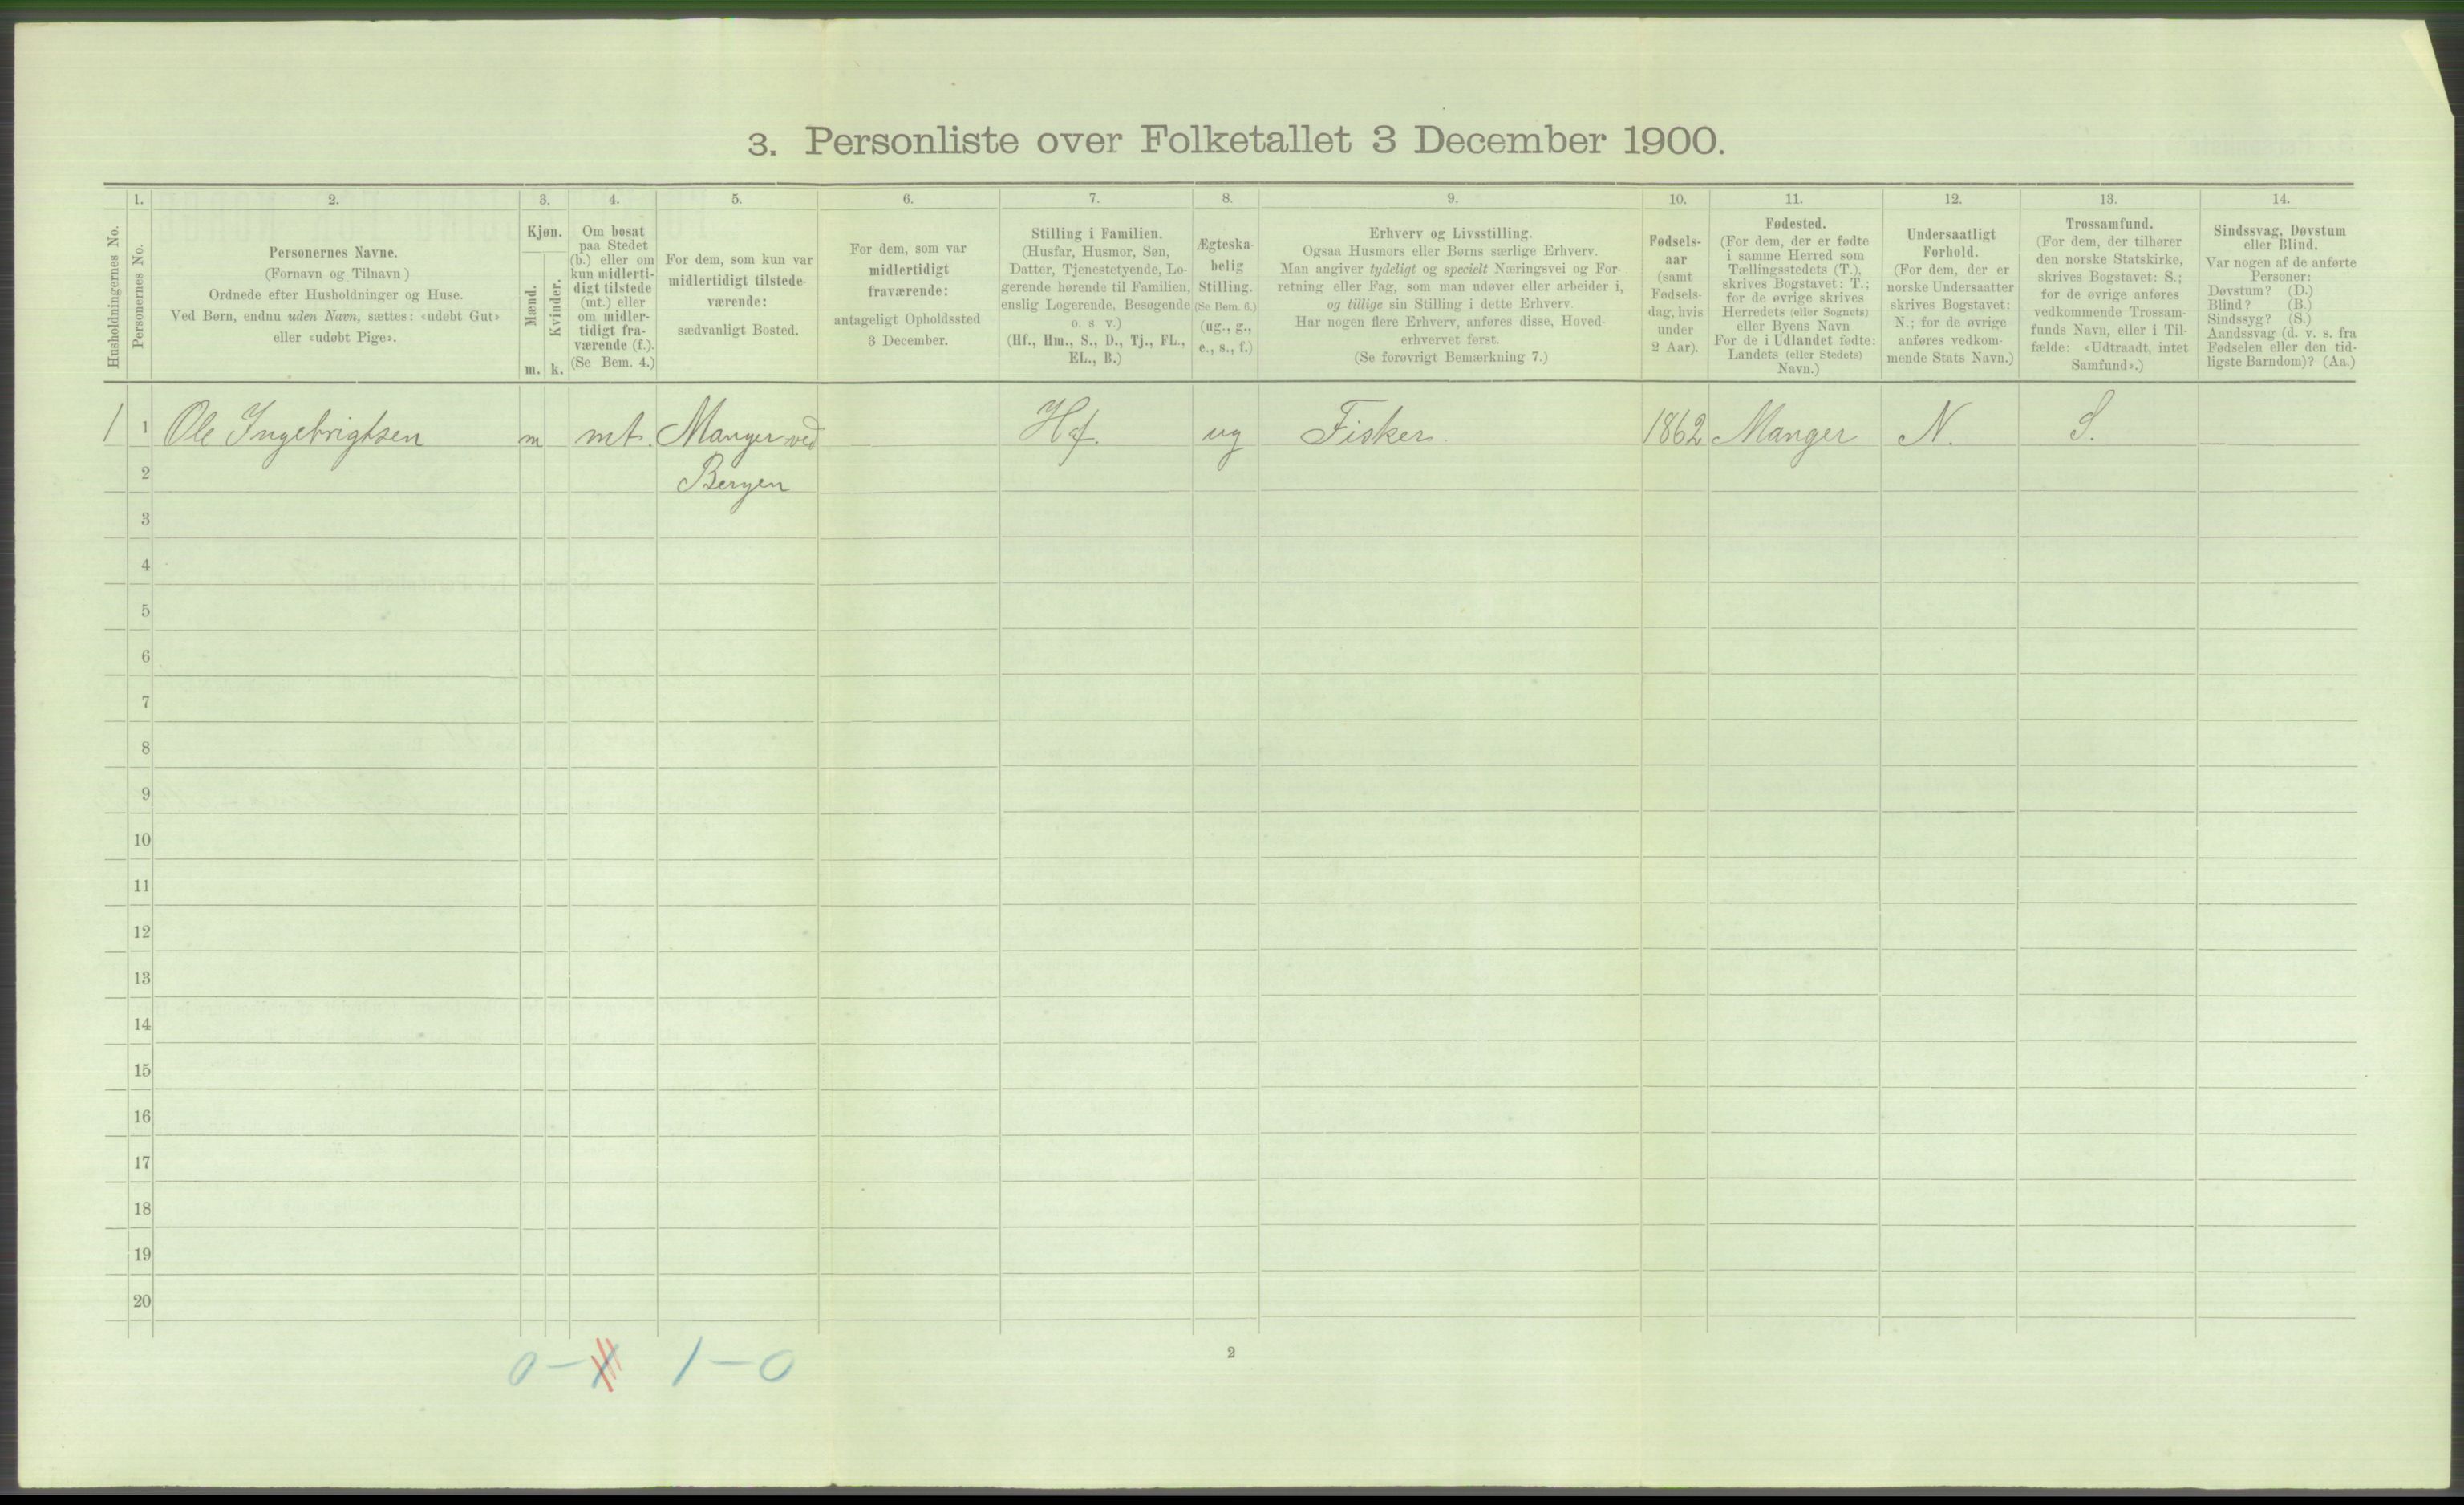 3. Personliste over Folketallet 3 December 1900.
1. 2. 3. 4. 5. 6. 7. 8. 9. 10. 11. 12. 13. 14.
Husholdningernes No.
Personernes No.
Personernes Navne.
(Fornavn og Tilnavn)
Ordnede efter Husholdninger og Huse.
Ved Børn, endnu uden Navn, sættes: «udøbt Gut»
eller «udøbt Pige».
Kjøn.
Mænd.
Kvinder.
m. k.
Om bosat
paa Stedet
(b.) eller om
kun midlerti-
digt tilstede
(mt.) eller
om midler-
tidigt fra-
værende (f.).
(Se Bem. 4.)
For dem, som kun var
midlertidigt tilstede-
værende:
sædvanligt Bosted.
For dem, som var
midlertidigt
fraværende:
antageligt Opholdssted
3 December.
Stilling i Familien.
(Husfar, Husmor, Søn,
Datter, Tjenestetyende, Lo-
gerende hørende til Familien,
enslig Logerende, Besøgende
o. s v.)
(Hf., Hm., S., D., Tj., FL.,
EL., B.)
Ægteska-
belig
Stilling.
(Se Bem. 6.)
(ug., g.,
e., s., f.)
Erhverv og Livsstilling.
Ogsaa Husmors eller Børns særlige Erhverv.
Man angiver tydeligt og specielt Næringsvei og For-
retning eller Fag, som man udøver eller arbeider i,
og tillige sin Stilling i dette Erhverv
Har nogen flere Erhverv, anføres disse, Hoved-
erhvervet først.
(Se forøvrigt Bemærkning 7.)
Fødsels-
aar
(samt
Fødsels-
dag, hvis
under
2 Aar).
Fødested.
(For dem, der er fødte
i samme Herred som
Tællingsstedets (T.),
skrives Bogstavet: T.;
for de øvrige skrives
Herredets (eller Sognets)
eller Byens Navn
For de i Udlandet fødte:
Landets (eller Stedets)
Navn.)
Undersaatligt
Forhold.
(For dem, der er
norske Undersaatter
skrives Bogstavet:
N.; for de øvrige
anføres vedkom-
mende Stats Navn.)
Trossamfund.
(For dem, der tilhører
den norske Statskirke,
skrives Bogstavet: S.;
for de øvrige anføres
vedkommende Trossam-
funds Navn, eller i Til-
fælde: «Udtraadt, intet
Samfund».)
Sindssvag, Døvstum
eller Blind.
Var nogen af de anførte
Personer:
Døvstum? (D.)
Blind? (B.)
Sindssyg? (S.)
Aandssvag (d. v. s. fra
Fødselen eller den tid-
ligste Barndom)? (Aa.)
1 1 Ole Ingebrigtsen m mt. Manger ved Hf. ug Fisker. 1862 Manger N. S.
2 Bergen
3
4
5
6
7
8
9
10
11
12
13
14
15
16
17
18
19
20
0-1 1-0
2